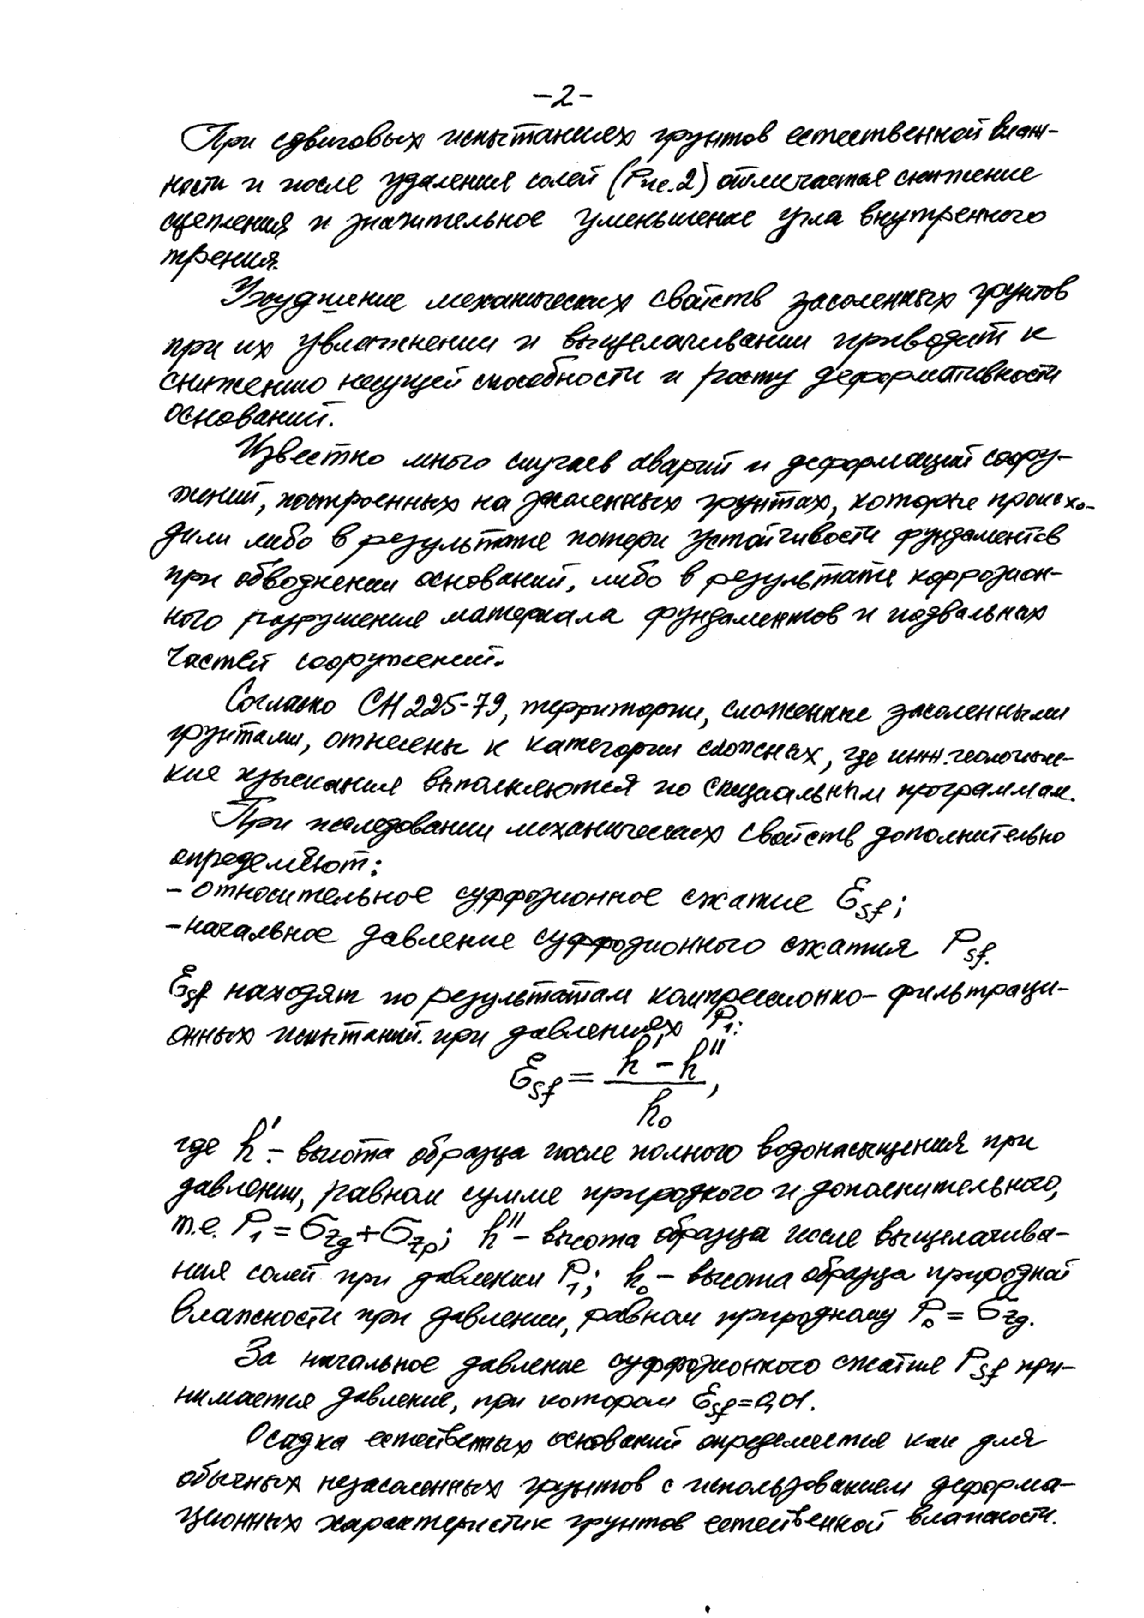 -2-
При сдвиговых испытаниях грунтов естественной влаж-
ности и после удаления солей (Рис.2) отмечается снижение
сцепления и значительное уменьшение угла внутреннего
трения.
Ухудшение механических свойств засоленных грунтов
при их увлажнении и выщелачивании приводит к
снижению несущей способности и росту деформативности
оснований.
Известно много случаев аварий и деформаций соору-
жений, построенных на засоленных грунтах, которые происхо-
дили либо в результате потери устойчивости фундаментов
при обводнении оснований, либо в результате коррозион-
ного разрушения материала фундаментов и подвальных
частей сооружений.
Согласно СН 225-79, территории, сложенные засоленными
грунтами, отнесены к категории сложных, где инж.геологичес-
кие изыскания выполняются по специальным программам.
При исследовании механических свойств дополнительно
определяют:
- относительное суффозионное сжатие Ɛsf;
- начальное давление суффозионного сжатия Psf.
Ɛsf находят по результатам компрессионно-фильтраци-
онных испытаний при давлениях P₁:
Ɛsf = (h' - h'')/h₀,
где h' - высота образца после полного водонасыщения при
давлении, равном сумме природного и дополнительного,
т.е. P₁ = σzg + σzp; h'' - высота образца после выщелачива-
ния солей при давлении P₁; h₀ - высота образца природной
влажности при давлении, равном природному P₀ = σzg.
За начальное давление суффозионного сжатия Psf при-
нимается давление, при котором Ɛsf = 0,01.
Осадка естественных оснований определяется как для
обычных незасоленных грунтов с использованием деформа-
ционных характеристик грунтов естественной влажности.